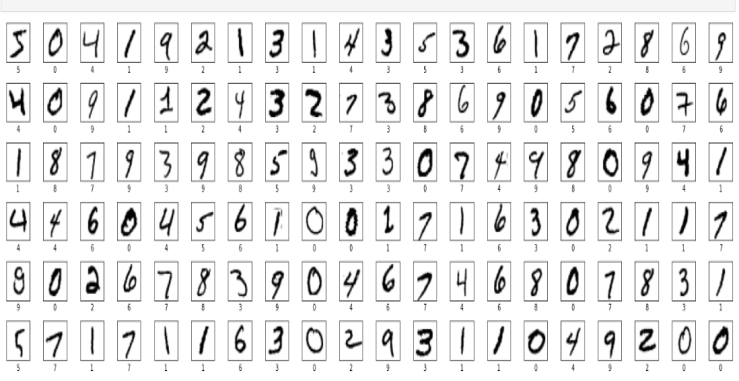 5 0 4 1 9 2 1 3 1 4 3 5 3 6 1 7 2 8 6 9
5 0 4 1 9 2 1 3 1 4 3 5 3 6 1 7 2 8 6 9
4 0 9 1 1 2 4 3 2 7 3 8 6 9 0 5 6 0 7 6
4 0 9 1 1 2 4 3 2 7 3 8 6 9 0 5 6 0 7 6
1 8 7 9 3 9 8 5 9 3 3 0 7 4 9 8 0 9 4 1
1 8 7 9 3 9 8 5 9 3 3 0 7 4 9 8 0 9 4 1
4 4 6 0 4 5 6 1 0 0 1 7 1 6 3 0 2 1 1 7
4 4 6 0 4 5 6 1 0 0 1 7 1 6 3 0 2 1 1 7
9 0 2 6 7 8 3 9 0 4 6 7 4 6 8 0 7 8 3 1
9 0 2 6 7 8 3 9 0 4 6 7 4 6 8 0 7 8 3 1
5 7 1 7 1 1 6 3 0 2 9 3 1 1 0 4 9 2 0 0
5 7 1 7 1 1 6 3 0 2 9 3 1 1 0 4 9 2 0 0